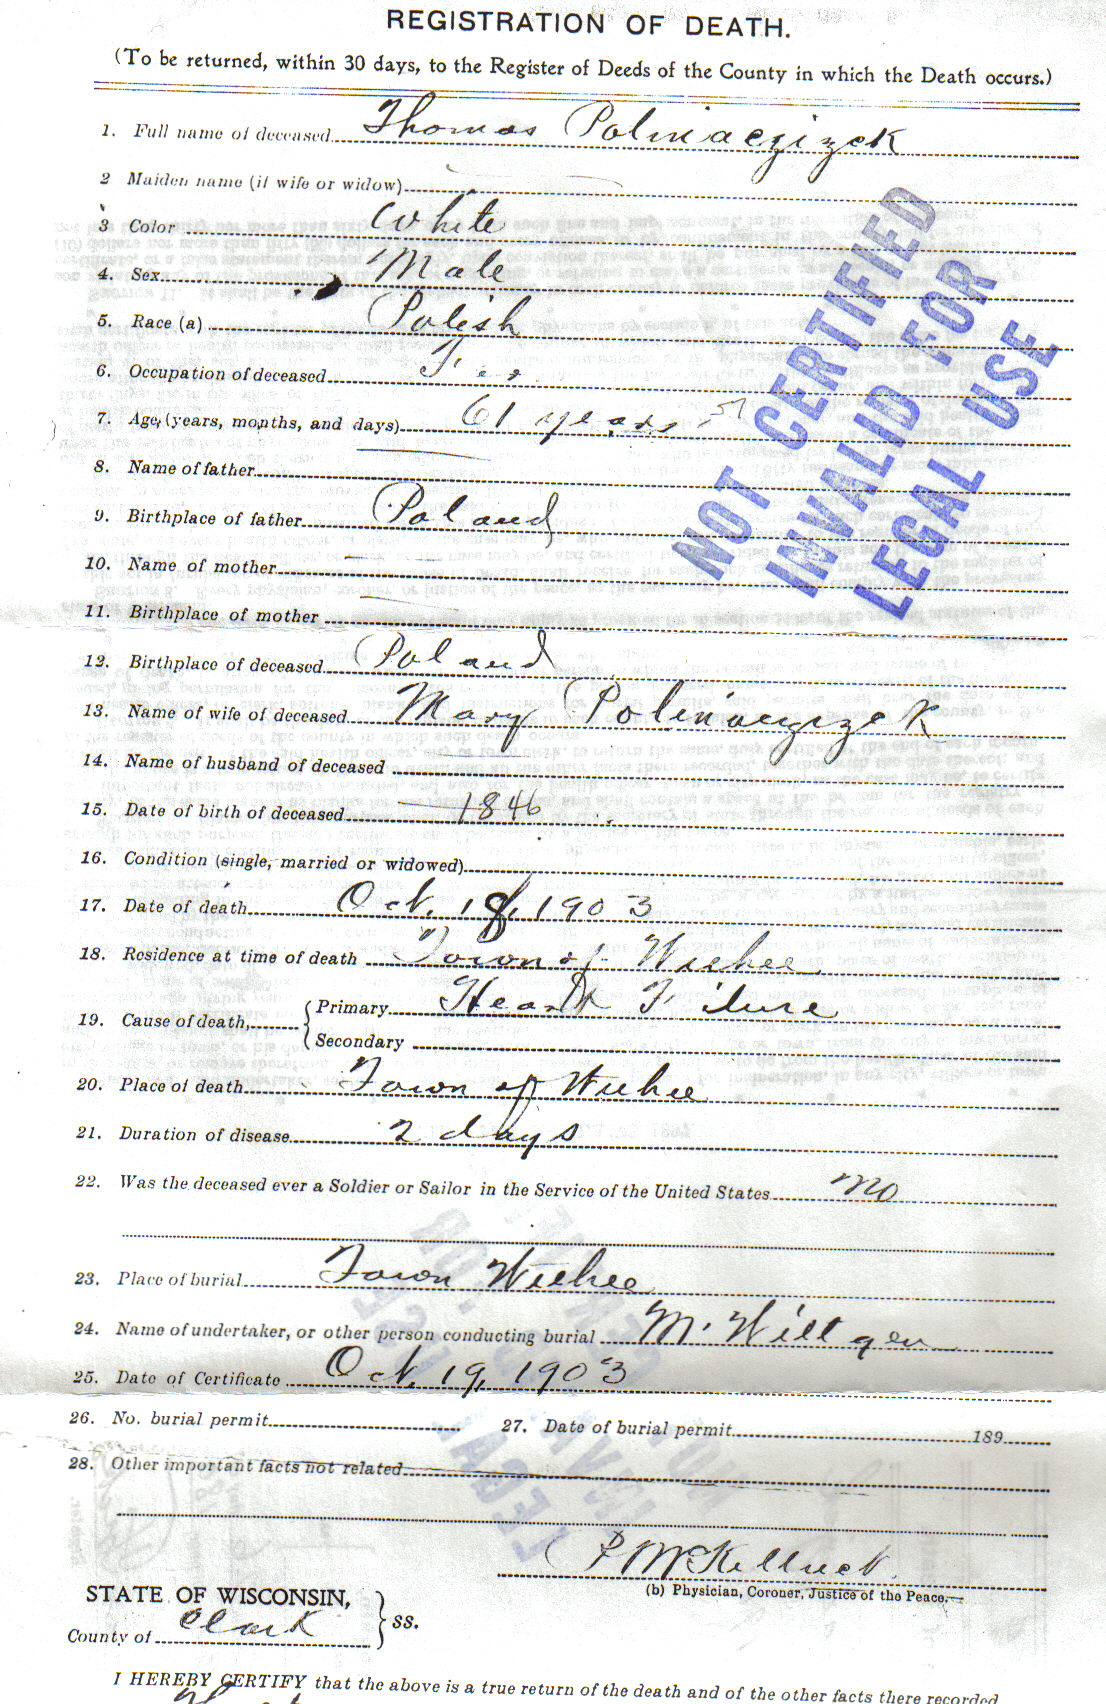 REGISTRATION OF DEATH.
(To be returned, within 30 days, to the Register of Deeds of the County in which the Death occurs.)
1. Full name of deceased Thomas Polniaczizek
2 Maiden name (if wife or widow)
3 Color White
4. Sex Male
5. Race (a) Polish
6. Occupation of deceased
7. Age, (years, months, and days) 61 years 57
8. Name of father
9. Birthplace of father Poland
10. Name of mother
11. Birthplace of mother
12. Birthplace of deceased Poland
13. Name of wife of deceased Mary Polniaczizek
14. Name of husband of deceased
15. Date of birth of deceased 1846
16. Condition (single, married or widowed)
17. Date of death Oct. 18, 1903
18. Residence at time of death Town of Withee
19. Cause of death, Primary Heart Failure
Secondary
20. Place of death Town of Withee
21. Duration of disease 2 days
22. Was the deceased ever a Soldier or Sailor in the Service of the United States no
23. Place of burial Town Withee
24. Name of undertaker, or other person conducting burial M. Wiltgen
25. Date of Certificate Oct. 19, 1903
26. No. burial permit 27. Date of burial permit 189
28. Other important facts not related
(b) Physician, Coroner, Justice of the Peace.
STATE OF WISCONSIN,
County of Clark ss.
I HEREBY CERTIFY that the above is a true return of the death and of the other facts there recorded
NOT CERTIFIED
INVALID FOR
LEGAL USE